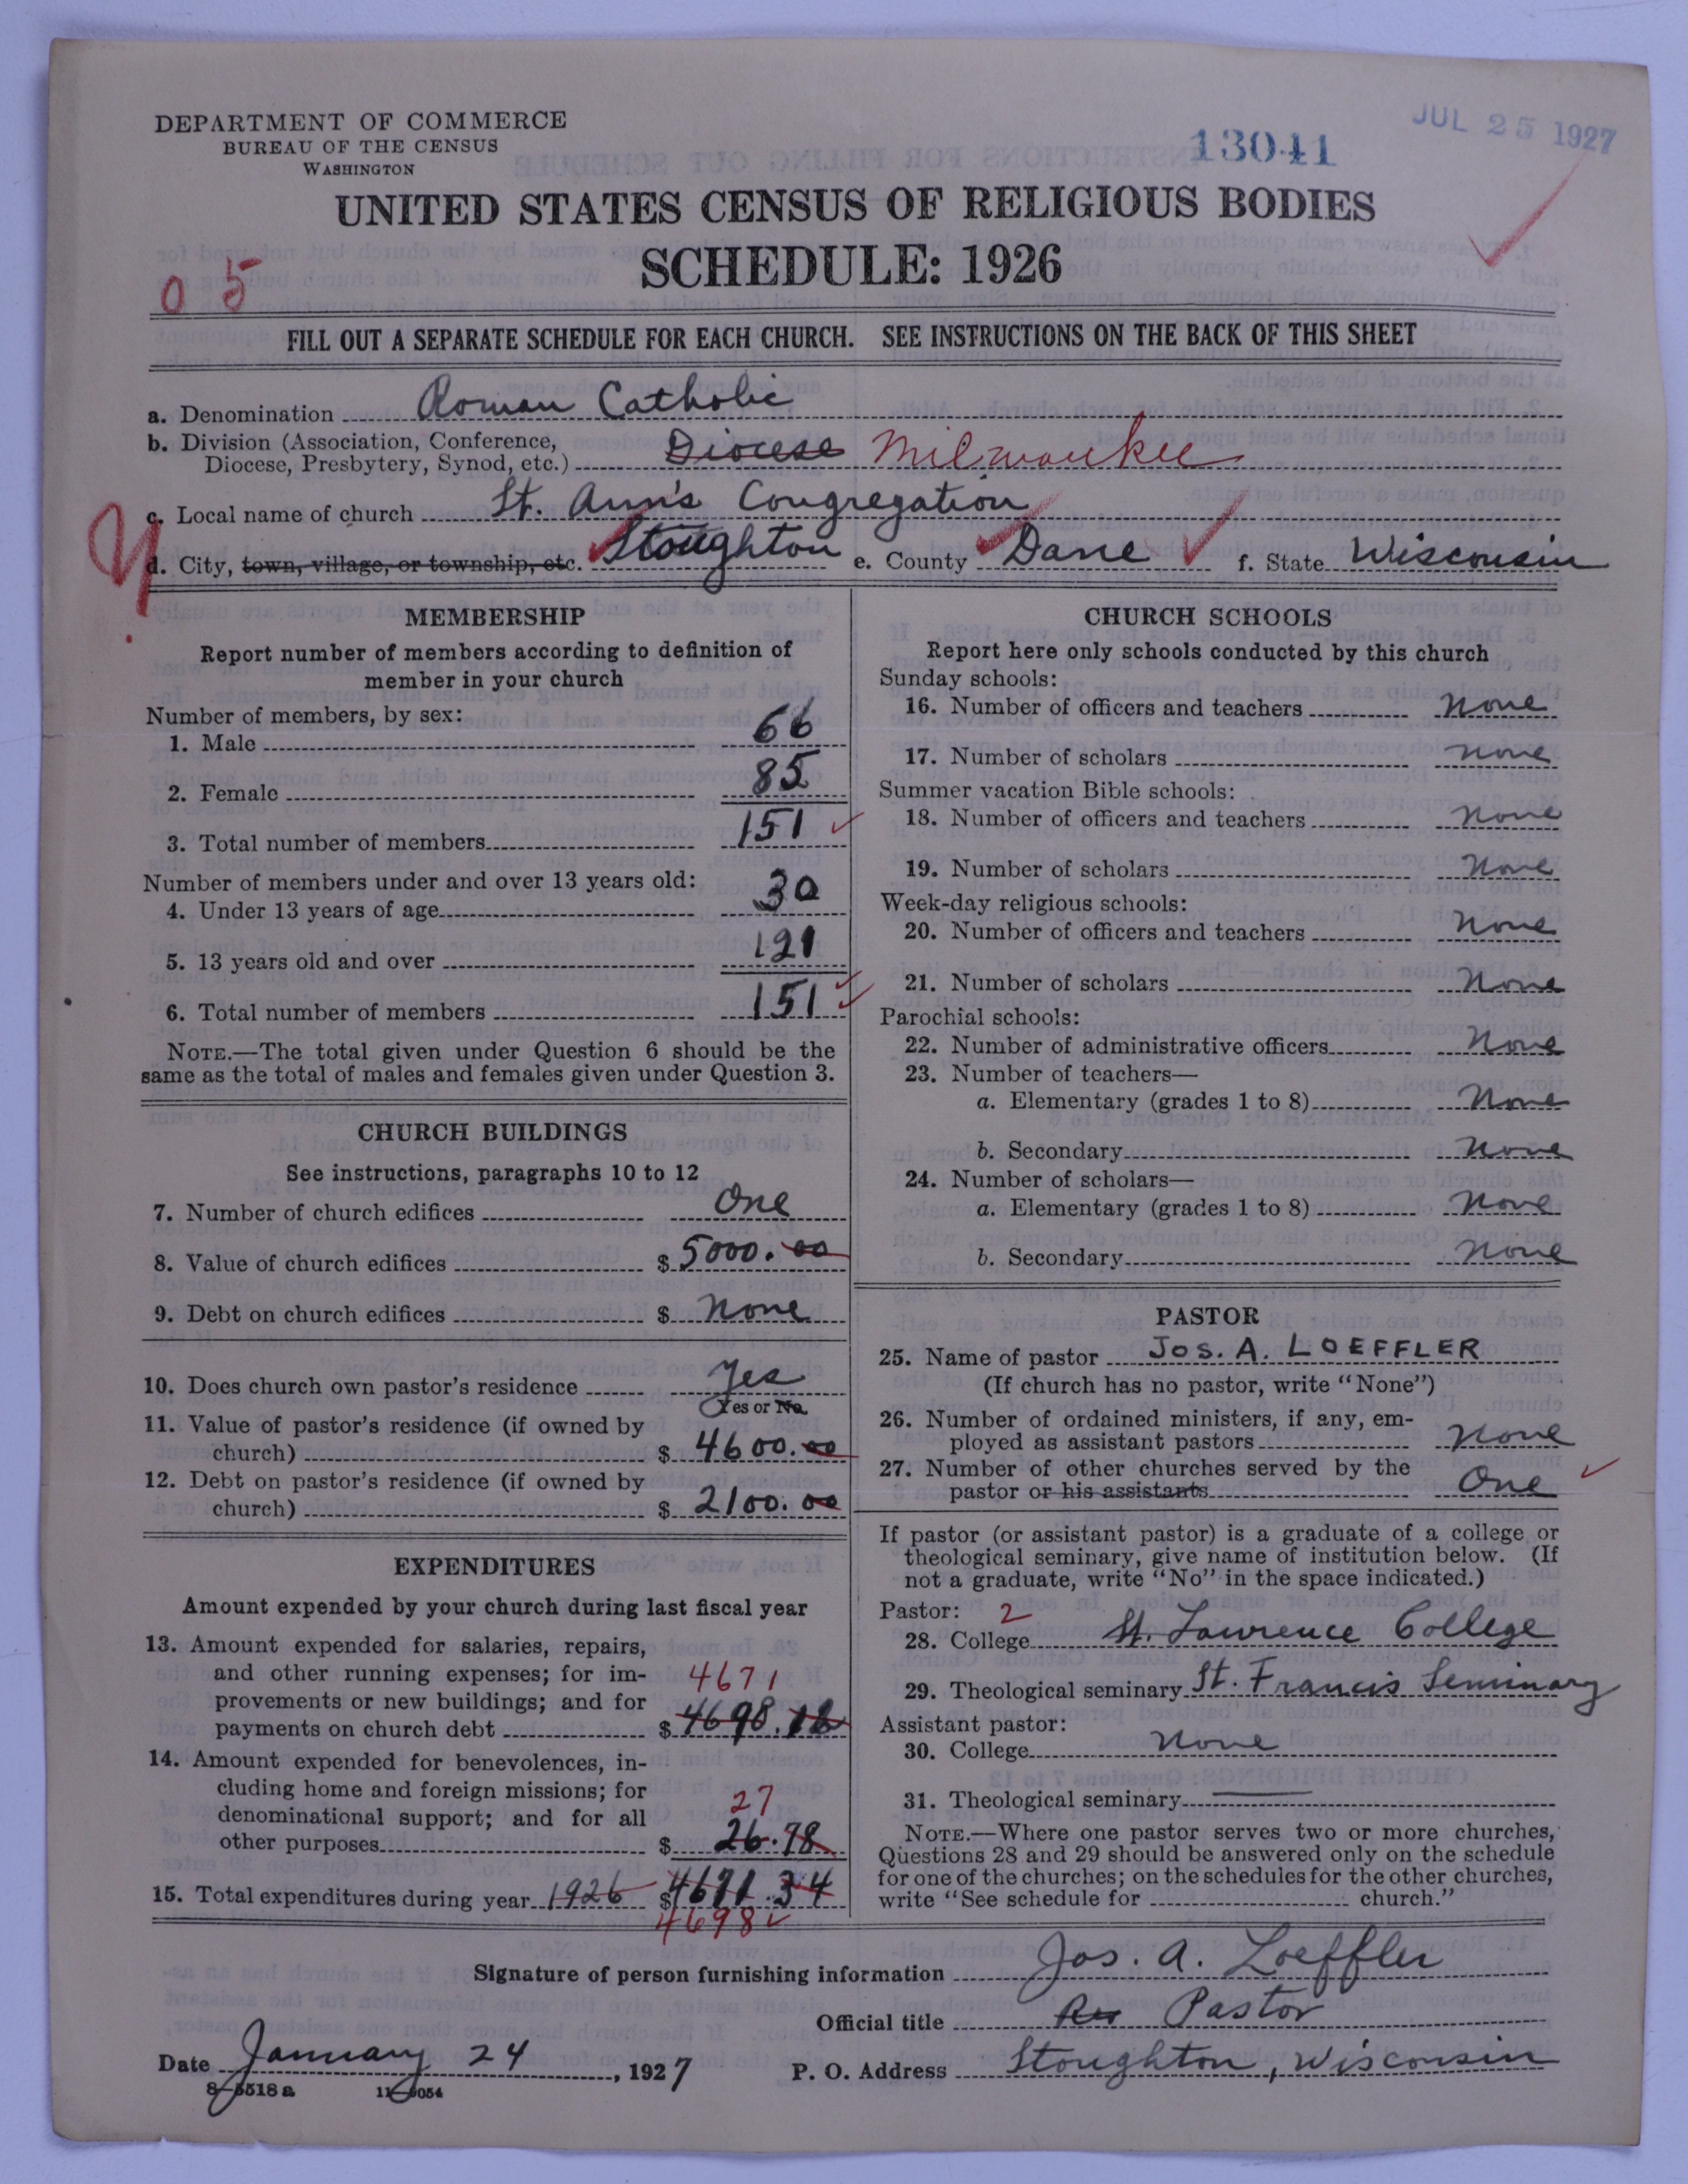 DEPARTMENT OF COMMERCE
BUREAU OF THE CENSUS
WASHINGTON
13041
JUL 25 1927
UNITED STATES CENSUS OF RELIGIOUS BODIES
SCHEDULE: 1926
05
FILL OUT A SEPARATE SCHEDULE FOR EACH CHURCH. SEE INSTRUCTIONS ON THE BACK OF THIS SHEET
a. Denomination Roman Catholic
b. Division (Association, Conference,
Diocese, Presbytery, Synod, etc.) Diocese Milwaukee
c. Local name of church St. Ann's Congregation
d. City, town, village, or township, etc. Stoughton e. County Dane f. State Wisconsin
MEMBERSHIP
Report number of members according to definition of
member in your church
Number of members, by sex:
1. Male 66
2. Female 85
3. Total number of members 151
Number of members under and over 13 years old:
4. Under 13 years of age 30
5. 13 years old and over 121
6. Total number of members 151
NOTE.—The total given under Question 6 should be the
same as the total of males and females given under Question 3.
CHURCH BUILDINGS
See instructions, paragraphs 10 to 12
7. Number of church edifices One
8. Value of church edifices $ 5000.00
9. Debt on church edifices $ None
10. Does church own pastor's residence Yes
Yes or No
11. Value of pastor's residence (if owned by
church) $ 4600.00
12. Debt on pastor's residence (if owned by
church) $ 2100.00
EXPENDITURES
Amount expended by your church during last fiscal year
13. Amount expended for salaries, repairs,
and other running expenses; for im-
provements or new buildings; and for 4671
payments on church debt $ 4698.12
14. Amount expended for benevolences, in-
cluding home and foreign missions; for
denominational support; and for all 27
other purposes $ 26.78
15. Total expenditures during year 1926 $ 4671.34
4698
CHURCH SCHOOLS
Report here only schools conducted by this church
Sunday schools:
16. Number of officers and teachers None
17. Number of scholars None
Summer vacation Bible schools:
18. Number of officers and teachers None
19. Number of scholars None
Week-day religious schools:
20. Number of officers and teachers None
21. Number of scholars None
Parochial schools:
22. Number of administrative officers None
23. Number of teachers—
a. Elementary (grades 1 to 8) None
b. Secondary None
24. Number of scholars—
a. Elementary (grades 1 to 8) None
b. Secondary None
PASTOR
25. Name of pastor JOS. A. LOEFFLER
(If church has no pastor, write "None")
26. Number of ordained ministers, if any, em-
ployed as assistant pastors None
27. Number of other churches served by the
pastor or his assistants One
If pastor (or assistant pastor) is a graduate of a college or
theological seminary, give name of institution below. (If
not a graduate, write "No" in the space indicated.)
Pastor: 2
28. College St. Lawrence College
29. Theological seminary St. Francis Seminary
Assistant pastor:
30. College None
31. Theological seminary
NOTE.—Where one pastor serves two or more churches,
Questions 28 and 29 should be answered only on the schedule
for one of the churches; on the schedules for the other churches,
write "See schedule for church."
Signature of person furnishing information Jos. A. Loeffler
Official title Pastor
Date January 24, 1927 P. O. Address Stoughton, Wisconsin